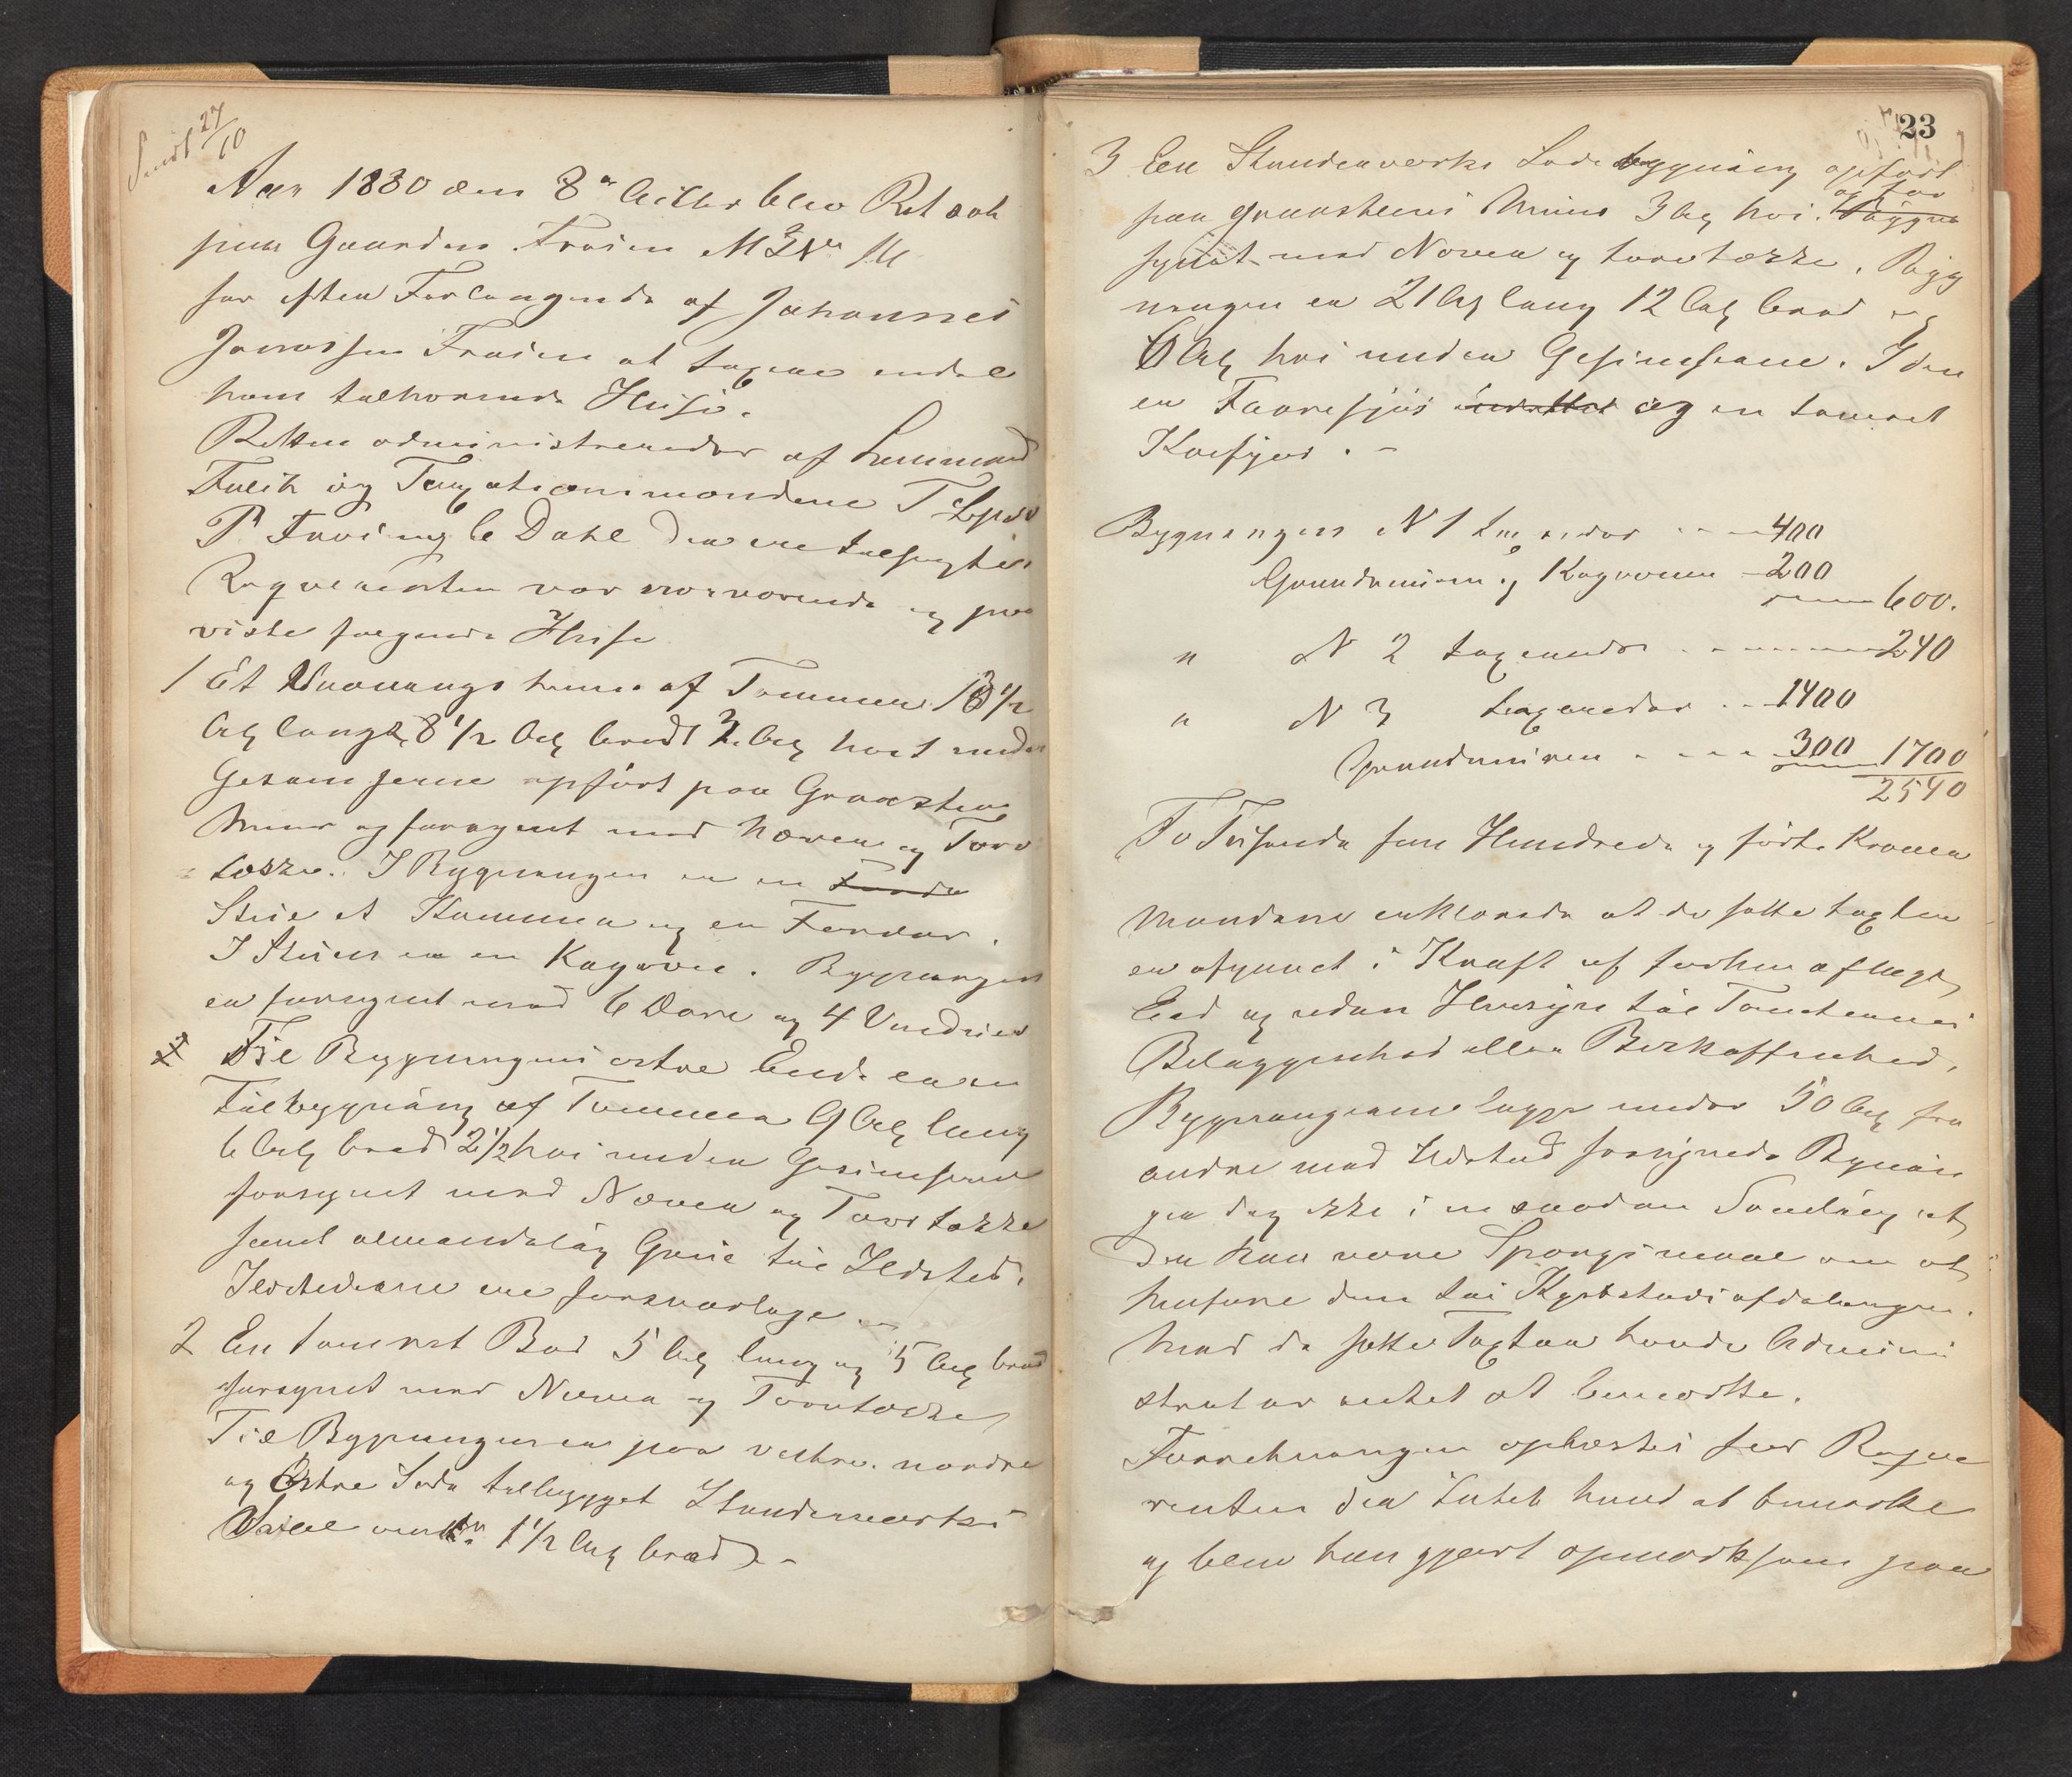 Sendt 27/10
Aar 1880 den 8de October blev Ret sat
paa Gaarden Frøien M
for efter Forlangende af Johannes
Jonassen Frøien at taxere endel
ham tilhørende Huse.
Retten administreredes af Lensmand
Falch og Taxationsmændene T
P og C Dahl der ere
Reqverenten var nærværende og paa
viste følgende Huse
1 Et Vaaningshuus af Tømmer 13 1/2
Al langt, 8 1/2 Al bredt 3 Al høit under
Gesimserne opført paa Graastens
Muur og forsynet med Næver og Torv
tække. I Bygningen er en
Stue et Kammer og en Fordør.
I Stuen er en Kagovn. Bygningen
er forsynet med 6 Døre og 4 Vinduer
Til Bygningens østre Ende er en
Tilbygning af Tømmer 9 Al lang
6 Al bred 2 1/2 høi under Gesimserne
forsynet med Næver og Torvtække
samt almindelig Grue til Ildsted.
Ildstederne ere forsvarlige.
2 En tømret Bod 5 Al lang og 5 Al bred
forsynet med Næver og Torvtække
Til Bygningen er paa vestre nordre
og Østre Side tilbygget Standerverks
1 1/2 Al bred. -
23
3 En Standerverks Lade bygning opført
paa Graasteens Muur 3 Al høi. og for
synet med Næver og torvtække. Byg
ningen er 21 Al lang 12 Al bred og
6 Al høi under Gesimserne. I den
er Faarefjøs indrettet og en tømret
Kofjøs. -
Bygningen N 1 taxeredes - - - 400
Grundmuren og Kagovnen - 200
600.
" N 2 taxeredes - - - 240
" N 3 taxeredes - - 1400
Grundmuren - - - - 300 1700
2540
To Tusende fem Hundrede og førti Kroner
Mændene erklærede at de satte taxten
er afgivet i Kraft af forhen aflagt
Eed og uden Hensyn til Tomternes
Beliggenhed eller Beskaffenhed.
Bygningerne ligge under 50 Al fra
andre med Ildsted forsynede Bygnin
ger dog ikke i en saadan Samling at
der kan være Spørgsmaal om at
henføre dem til Kjøbstadsafdelingen.
Mod de satte Taxter havde Admini
strator intet at bemærke.
Forretningen oplæstes for Reqve
renten der Intet havde at bemærke
og blev han gjort opmærksom paa